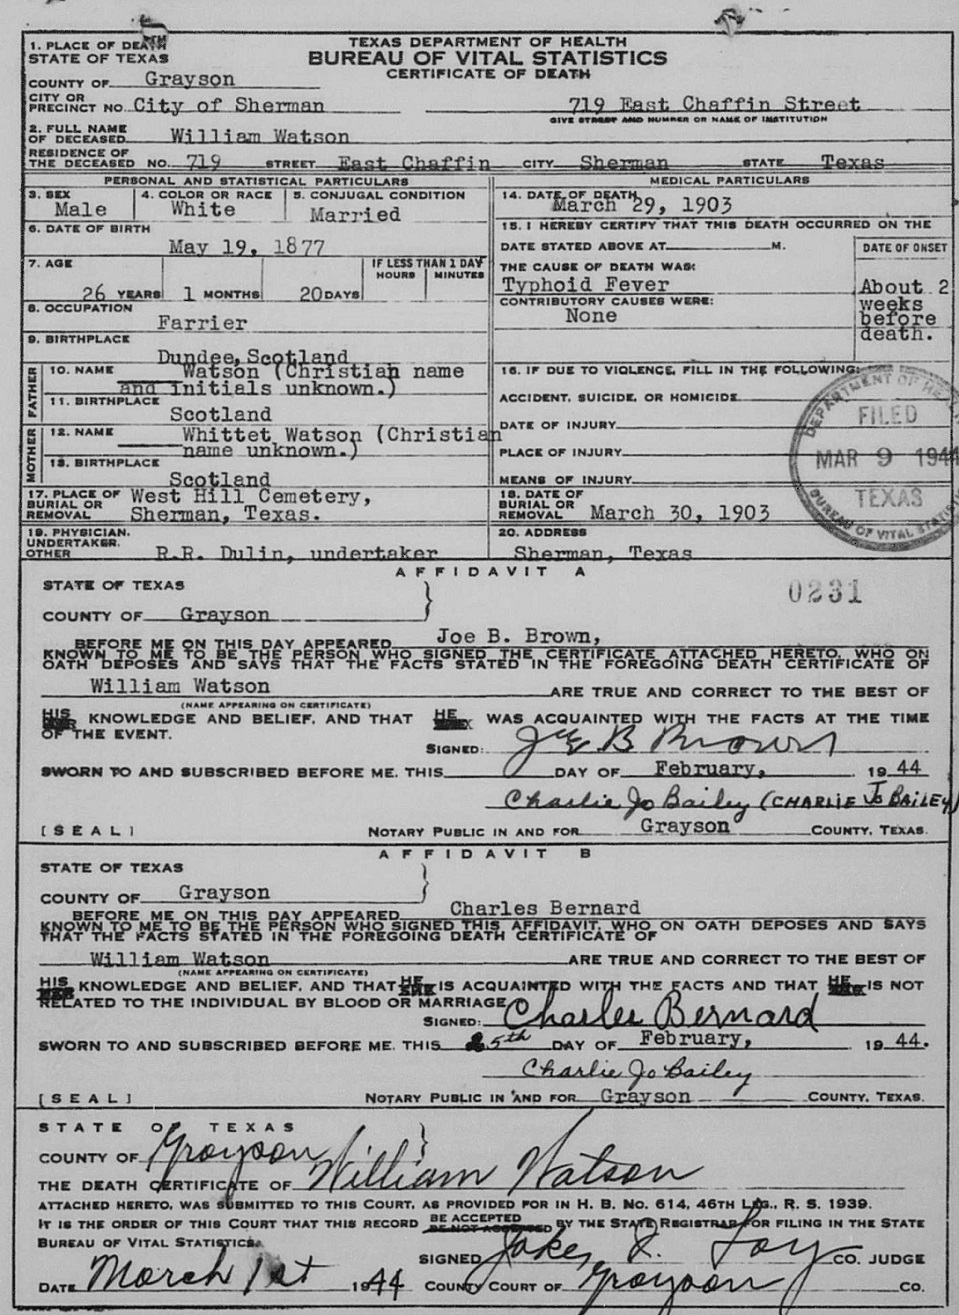 1. PLACE OF DEATH
STATE OF TEXAS
TEXAS DEPARTMENT OF HEALTH
BUREAU OF VITAL STATISTICS
CERTIFICATE OF DEATH
COUNTY OF Grayson
CITY OR PRECINCT NO. City of Sherman 719 East Chaffin Street
GIVE STREET AND NUMBER OR NAME OF INSTITUTION
2. FULL NAME OF DECEASED William Watson
RESIDENCE OF THE DECEASED NO. 719 STREET East Chaffin CITY Sherman STATE Texas
PERSONAL AND STATISTICAL PARTICULARS
3. SEX Male
4. COLOR OR RACE White
5. CONJUGAL CONDITION Married
6. DATE OF BIRTH
May 19, 1877
7. AGE
IF LESS THAN 1 DAY
HOURS MINUTES
26 YEARS 1 MONTHS 20 DAYS
8. OCCUPATION
Farrier
9. BIRTHPLACE
Dundee, Scotland
FATHER
10. NAME Watson (Christian name
and initials unknown.)
11. BIRTHPLACE
Scotland
MOTHER
12. NAME Whittet Watson (Christian
name unknown.)
13. BIRTHPLACE
Scotland
17. PLACE OF BURIAL OR REMOVAL West Hill Cemetery,
Sherman, Texas.
19. PHYSICIAN, UNDERTAKER, OTHER R.R. Dulin, undertaker
MEDICAL PARTICULARS
14. DATE OF DEATH
March 29, 1903
15. I HEREBY CERTIFY THAT THIS DEATH OCCURRED ON THE
DATE STATED ABOVE AT M.
DATE OF ONSET
THE CAUSE OF DEATH WAS:
Typhoid Fever
About 2
weeks
before
death.
CONTRIBUTORY CAUSES WERE:
None
16. IF DUE TO VIOLENCE, FILL IN THE FOLLOWING:
ACCIDENT, SUICIDE, OR HOMICIDE
DATE OF INJURY
PLACE OF INJURY
MEANS OF INJURY
DEPARTMENT OF
FILED
MAR 9 194
TEXAS
BUREAU OF VITAL
18. DATE OF BURIAL OR REMOVAL March 30, 1903
20. ADDRESS
Sherman, Texas
AFFIDAVIT A
0231
STATE OF TEXAS
COUNTY OF Grayson
BEFORE ME ON THIS DAY APPEARED Joe B. Brown,
KNOWN TO ME TO BE THE PERSON WHO SIGNED THE CERTIFICATE ATTACHED HERETO, WHO ON
OATH DEPOSES AND SAYS THAT THE FACTS STATED IN THE FOREGOING DEATH CERTIFICATE OF
William Watson ARE TRUE AND CORRECT TO THE BEST OF
(NAME APPEARING ON CERTIFICATE)
HIS KNOWLEDGE AND BELIEF, AND THAT HE WAS ACQUAINTED WITH THE FACTS AT THE TIME
OF THE EVENT.
SIGNED: Joe B Brown
SWORN TO AND SUBSCRIBED BEFORE ME, THIS DAY OF February, 19 44
Charlie Jo Bailey (CHARLIE Jo BAILEY)
[SEAL] NOTARY PUBLIC IN AND FOR Grayson COUNTY, TEXAS.
AFFIDAVIT B
STATE OF TEXAS
COUNTY OF Grayson
BEFORE ME ON THIS DAY APPEARED Charles Bernard
KNOWN TO ME TO BE THE PERSON WHO SIGNED THIS AFFIDAVIT, WHO ON OATH DEPOSES AND SAYS
THAT THE FACTS STATED IN THE FOREGOING DEATH CERTIFICATE OF
William Watson ARE TRUE AND CORRECT TO THE BEST OF
(NAME APPEARING ON CERTIFICATE)
HIS KNOWLEDGE AND BELIEF, AND THAT HE IS ACQUAINTED WITH THE FACTS AND THAT HE IS NOT
RELATED TO THE INDIVIDUAL BY BLOOD OR MARRIAGE
SIGNED: Charles Bernard
SWORN TO AND SUBSCRIBED BEFORE ME, THIS 5th DAY OF February, 19 44.
Charlie Jo Bailey
[SEAL] NOTARY PUBLIC IN AND FOR Grayson COUNTY, TEXAS.
STATE OF TEXAS
COUNTY OF Grayson
THE DEATH CERTIFICATE OF William Watson
ATTACHED HERETO, WAS SUBMITTED TO THIS COURT, AS PROVIDED FOR IN H. B. NO. 614, 46TH LEG., R. S. 1939.
IT IS THE ORDER OF THIS COURT THAT THIS RECORD BE ACCEPTED BE NOT ACCEPTED BY THE STATE REGISTRAR FOR FILING IN THE STATE
BUREAU OF VITAL STATISTICS.
SIGNED Jake J. Loy CO. JUDGE
DATE March 1st 1944 COUNTY COURT OF Grayson CO.